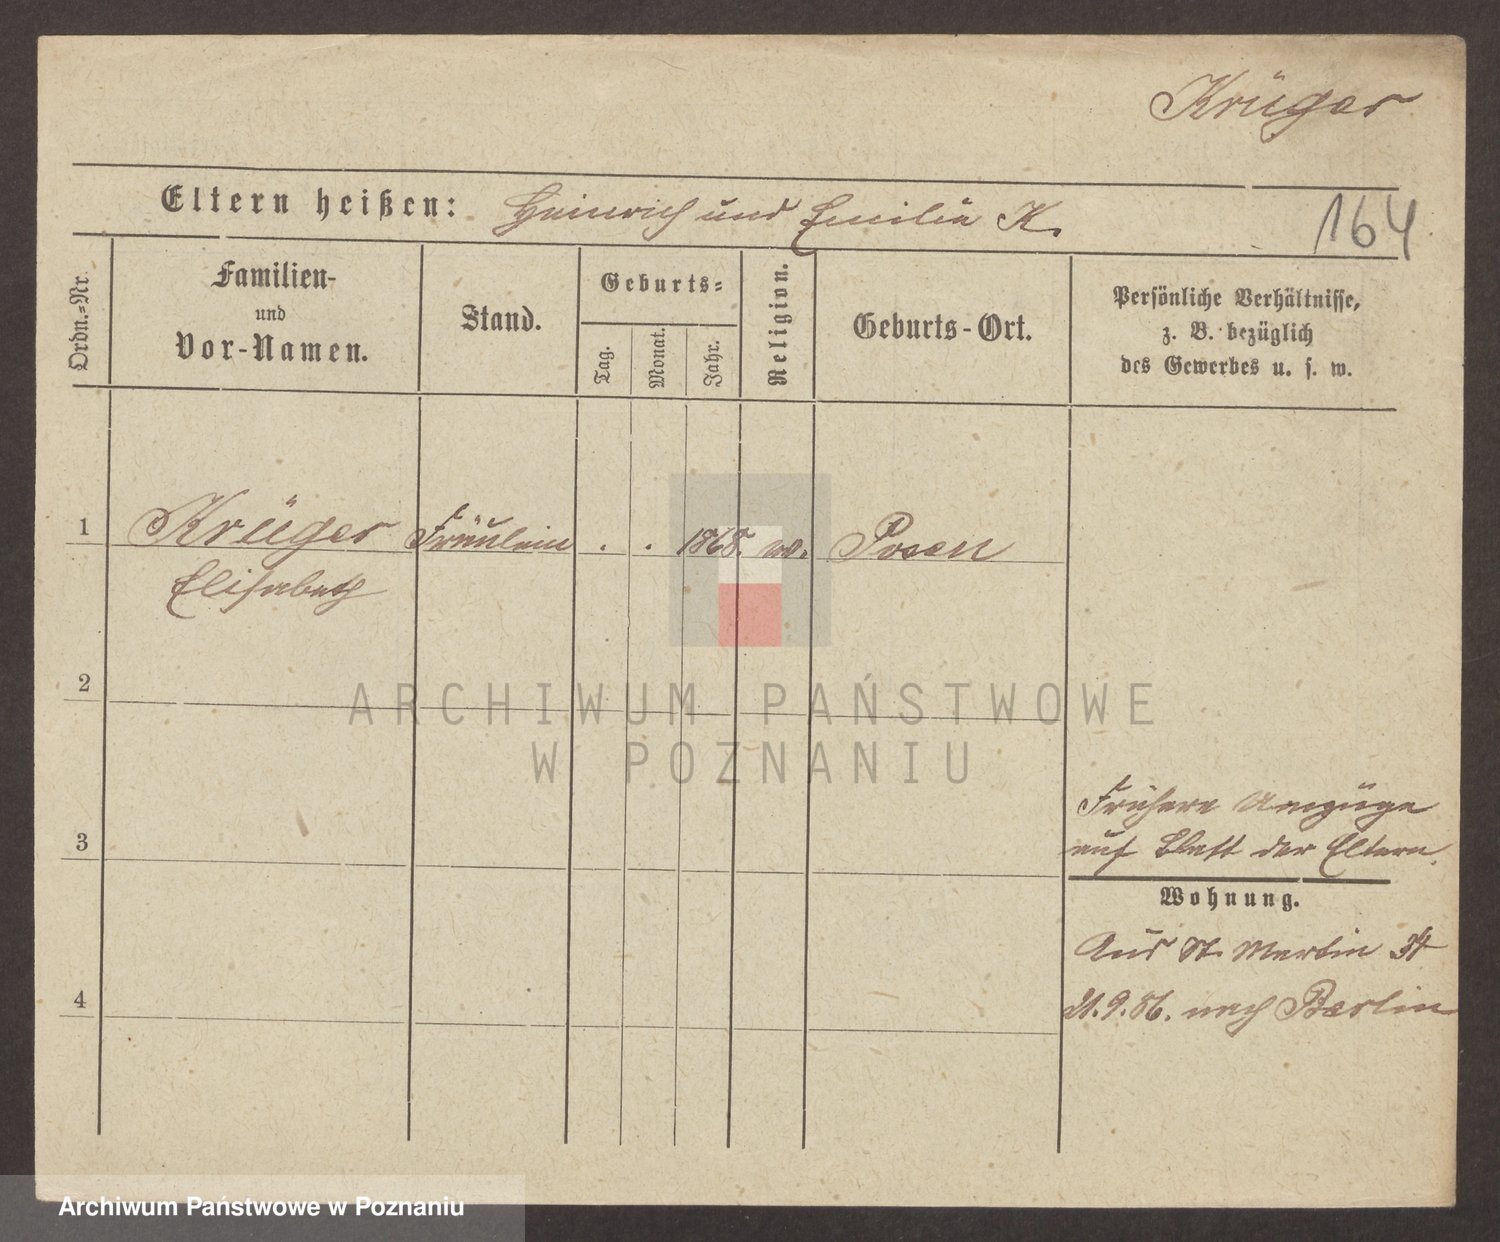 Krüger
Eltern heißen: Heinrich und Emilie K.
164
Ordn.=Nr.
Familien-
und
Vor-Namen.
Stand.
Geburts=
Tag.
Monat.
Jahr.
Religion.
Geburts-Ort.
Persönliche Verhältnisse,
z. B. bezüglich
des Gewerbes u. s. w.
1 Krüger Fräulein . . 1868. ev. Posen
Elisabeth
2
ARCHIWUM PAŃSTWOWE
W POZNANIU
Frühere Umzüge
3 auf Blatt der Eltern.
Wohnung.
Aus St. Martin 34
4 21.9.86. nach Berlin
Archiwum Państwowe w Poznaniu